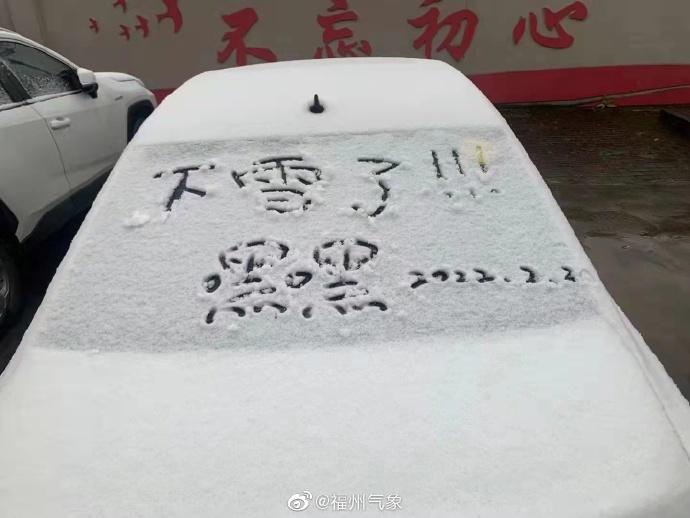 不忘初心
下雪了!!!
嘿嘿 2022.2.2
@福州气象